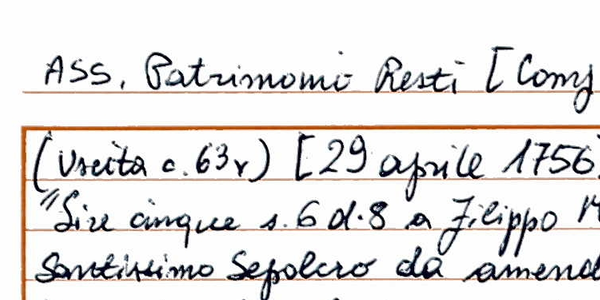 ASS. Patrimonio Resti [Comp
(Uscita c.63r) [29 aprile 1756
"Lire cinque s.6 d.8 a Filippo M
Santissimo Sepolcro da amend